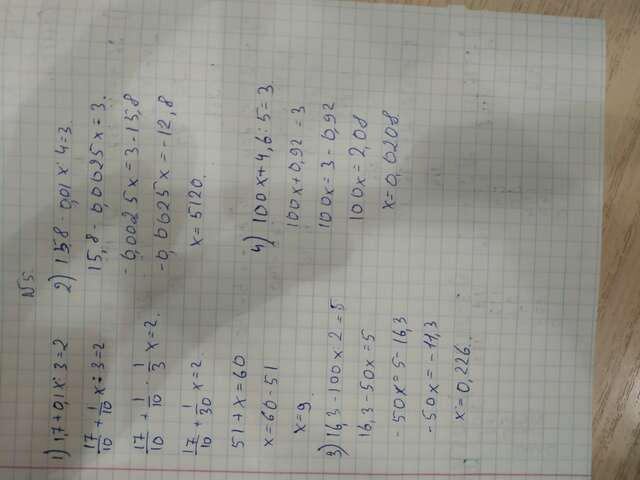 N5.
1) 1,7+0,1x:3=2
17/10 + 1/10 x:3=2
17/10 + 1/10 · 1/3 x=2.
17/10 + 1/30 x=2.
51+x=60
x=60-51
x=9.
2) 15,8-0,01x:4=3.
15,8-0,0025x=3.
-0,0025x=3-15,8
-0,0025x=-12,8
x=5120.
3) 16,3-100x:2=5
16,3-50x=5
-50x=5-16,3
-50x=-11,3
x=0,226.
4) 100x+4,6:5=3.
100x+0,92=3
100x=3-0,92
100x=2,08
x=0,0208